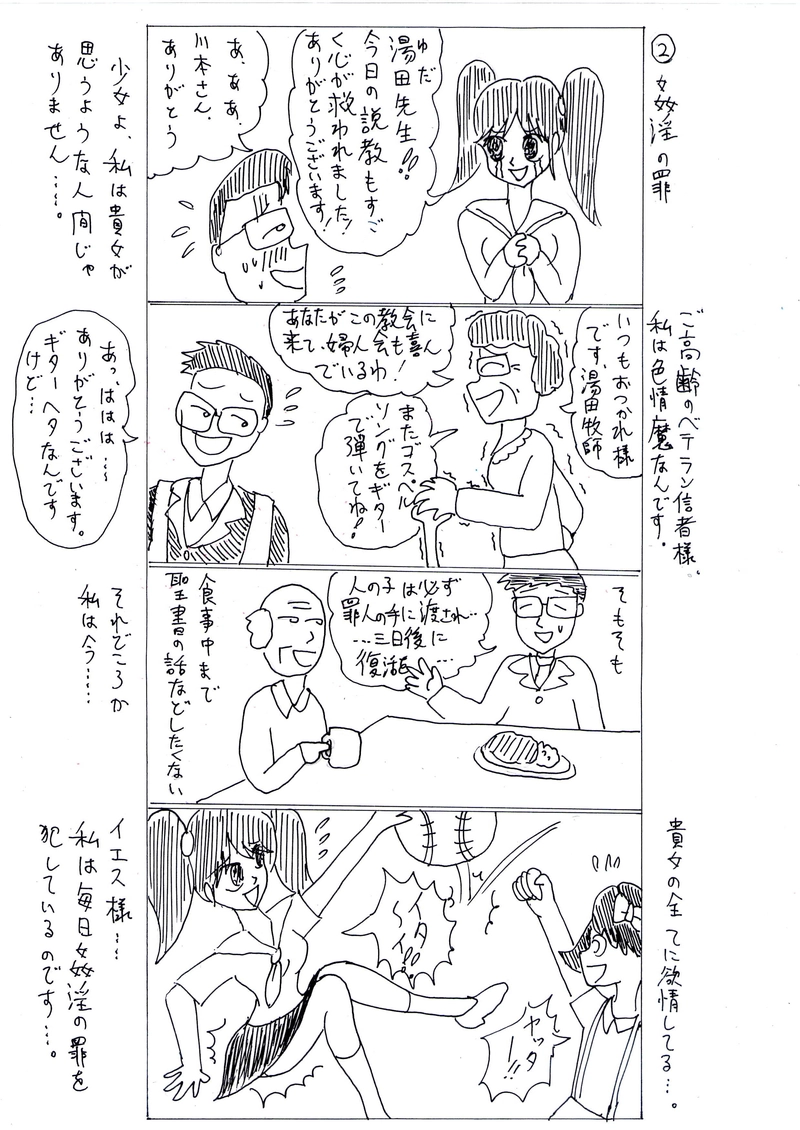 ② 姦淫の罪
湯田先生!!
ゆだ
今日の説教もすご
く心が救われました!
ありがとうございます!
あ、ああ、
川本さん、
ありがとう
少女よ、私は貴女が
思うような人間じゃ
ありません……。
ご高齢のベテラン信者様、
私は色情魔なんです。
いつもおつかれ様
です、湯田牧師
あなたがこの教会に
来て、婦人会も喜ん
でいるわ!
またゴスペル
ソングをギター
で弾いてね!
あっ、ははは…
ありがとうございます。
ギターヘタなんです
けど…
そもそも
人の子は必ず
罪人の手に渡され…
…三日後に
復活し…
食事中まで
聖書の話などしたくない
それどころか
私は今……
貴女の全てに欲情してる…。
イタ
〜イ!!
ヤッタ
ー!!
イエス様…
私は毎日姦淫の罪を
犯しているのです…。